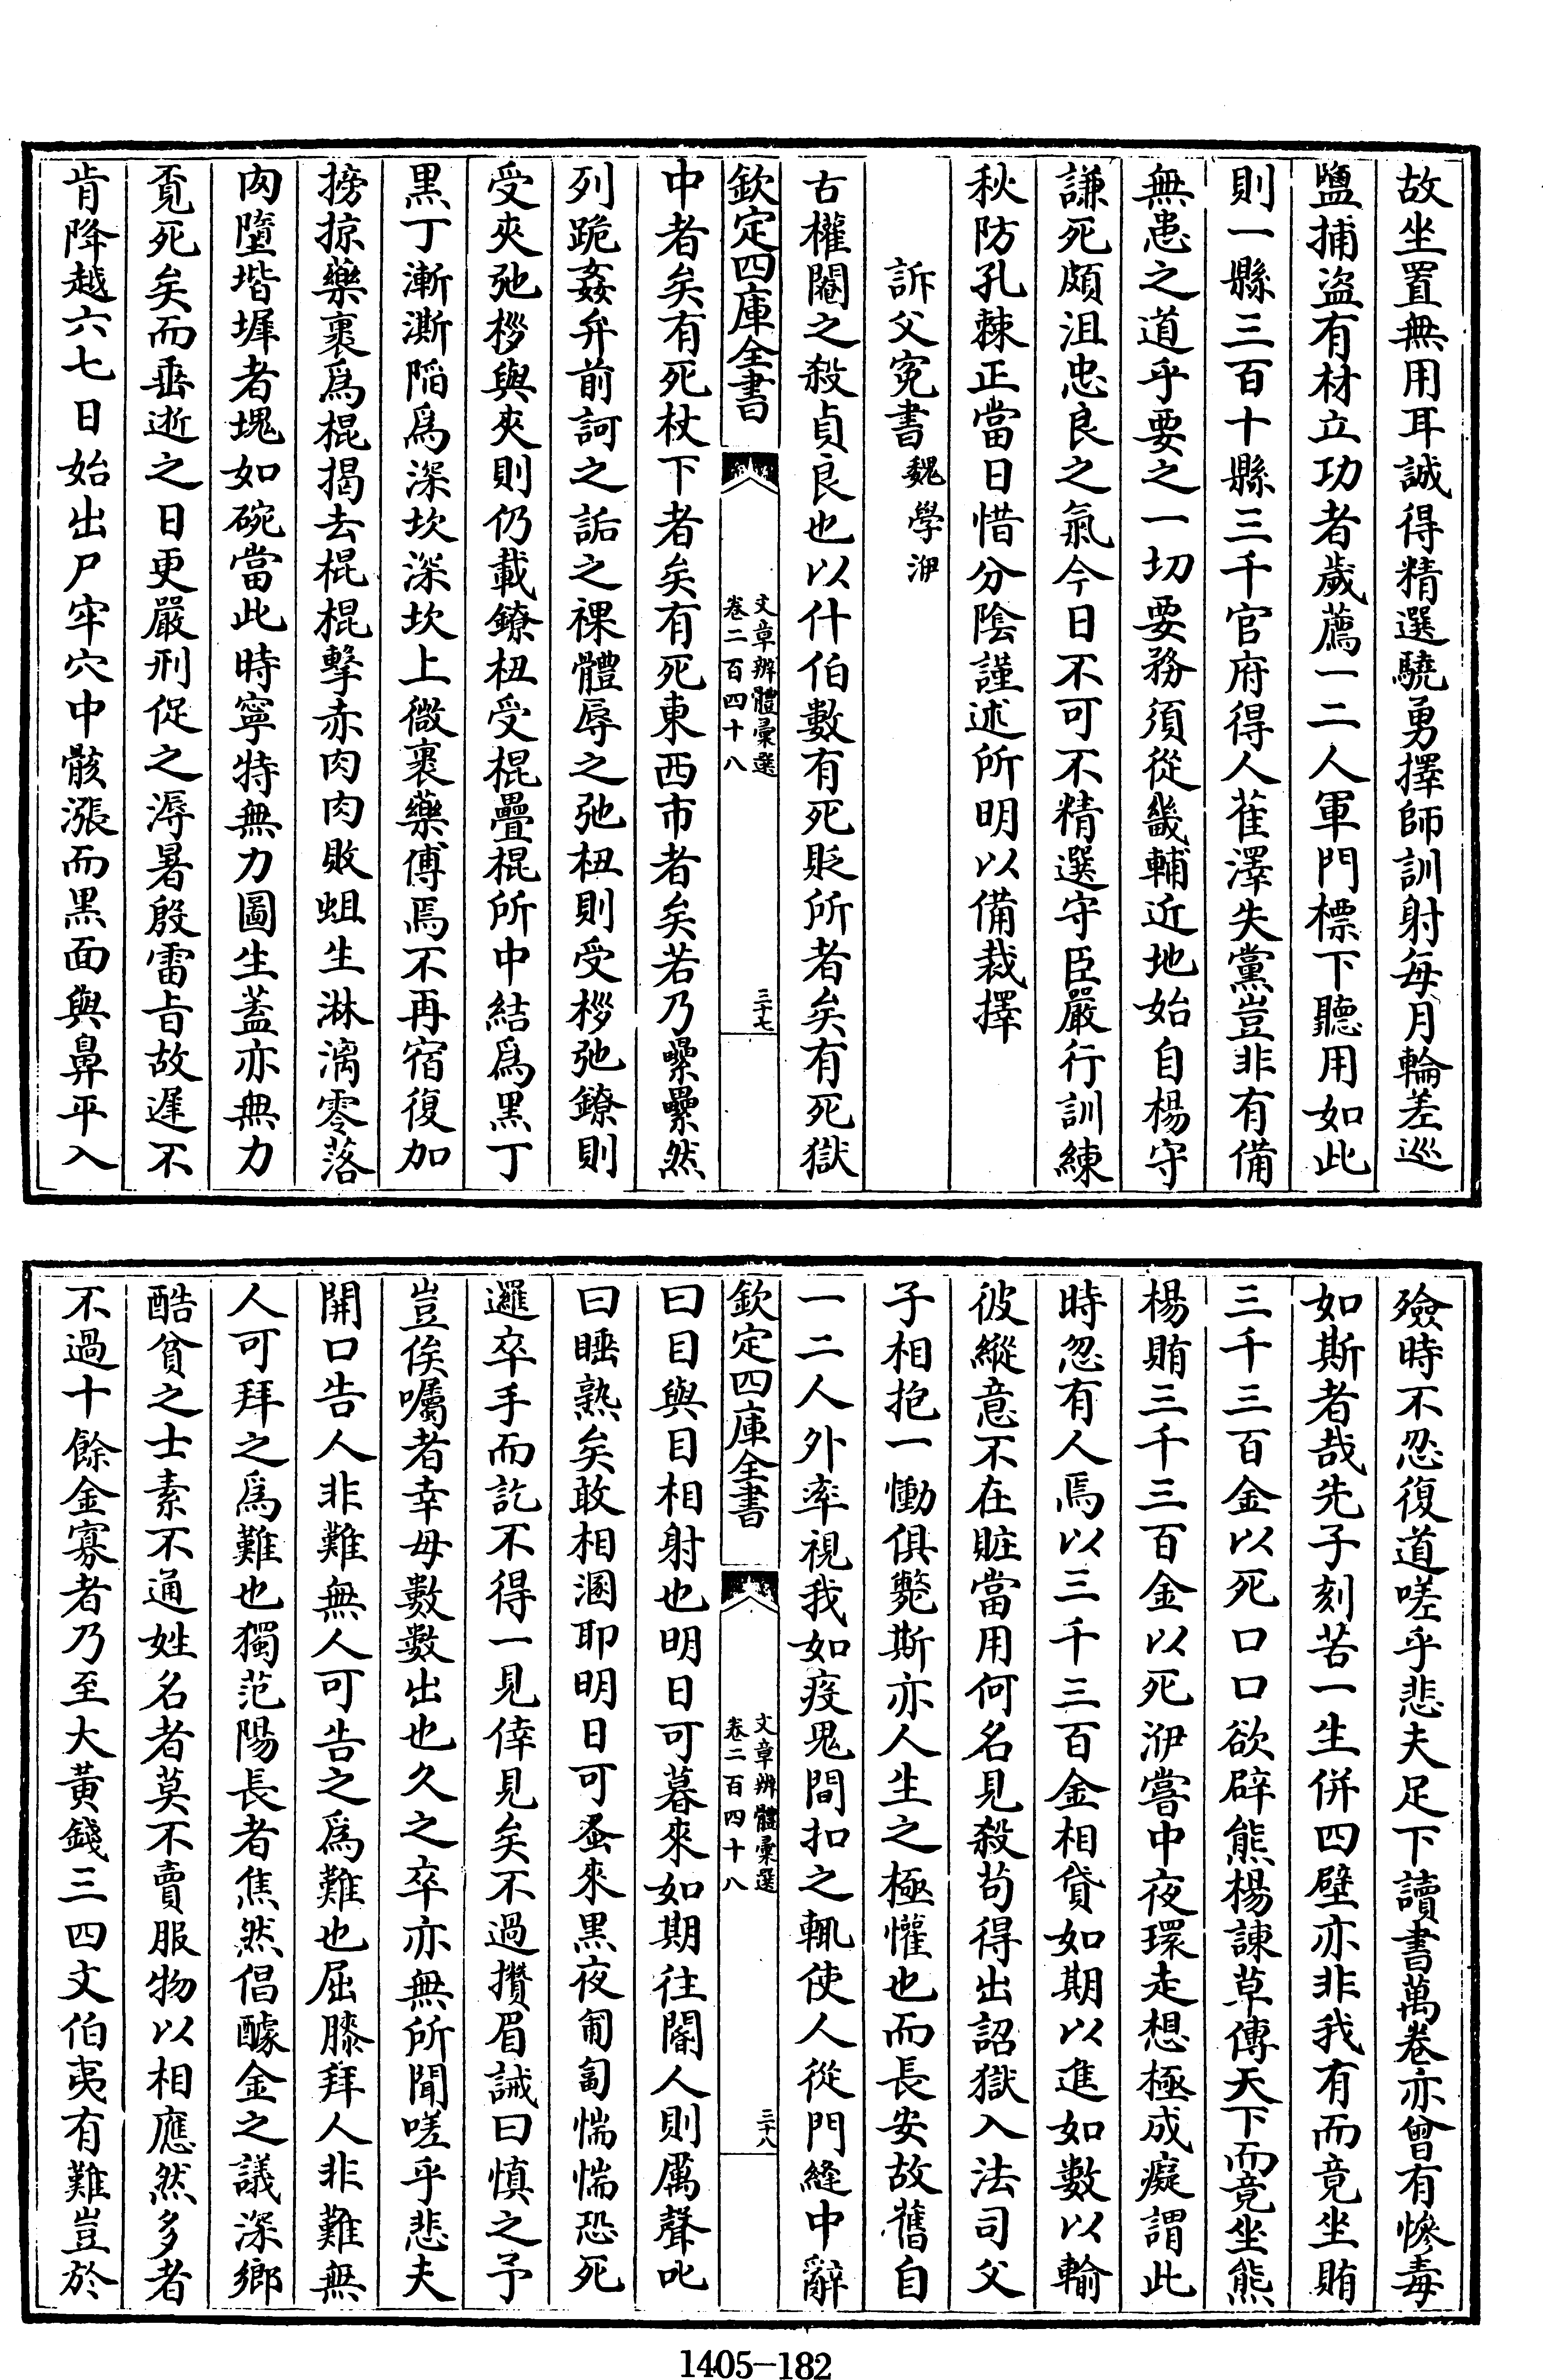 故坐置無用耳誠得精選驍勇擇師訓射每月輪差巡
鹽捕盜有材立功者歲薦一二人軍門標下聽用如此
則一縣三百十縣三千官府得人萑澤失黨豈非有備
無患之道乎要之一切要務須從畿輔近地始自楊守
謙死頗沮忠良之氣今日不可不精選守臣嚴行訓練
秋防孔棘正當日惜分陰謹述所明以備裁擇
訴父寃書 魏學洢
古權閹之殺貞良也以什伯數有死貶所者矣有死獄
欽定四庫全書
文章辨體彙選
卷二百四十八
三十七
中者矣有死杖下者矣有死東西市者矣若乃纍纍然
列跪姦弁前訶之詬之裸體辱之弛杻則受桚弛鐐則
受夾弛桚與夾則仍載鐐杻受棍疊棍所中結爲黑丁
黑丁漸澌陷爲深坎深坎上微裹藥傅焉不再宿復加
搒掠藥裹爲棍揭去棍棍擊赤肉肉敗蛆生淋漓零落
肉墮堦墀者塊如碗當此時寧特無力圖生蓋亦無力
覔死矣而垂逝之日更嚴刑促之溽暑殷雷旨故遲不
肯降越六七日始出尸牢穴中骸漲而黑面與鼻平入
殮時不忍復道嗟乎悲夫足下讀書萬卷亦曾有慘毒
如斯者哉先子刻苦一生併四壁亦非我有而竟坐賄
三千三百金以死口口欲辟熊楊諫草傳天下而竟坐熊
楊賄三千三百金以死洢嘗中夜環走想極成癡謂此
時忽有人焉以三千三百金相貸如期以進如數以輸
彼縱意不在賍當用何名見殺茍得出詔獄入法司父
子相抱一慟俱斃斯亦人生之極懽也而長安故舊自
一二人外率視我如疫鬼間扣之輒使人從門縫中辭
欽定四庫全書
文章辨體彙選
卷二百四十八
三十八
曰目與目相射也明日可暮來如期往閽人則厲聲叱
曰睡熟矣敢相溷耶明日可蚤來黑夜匍匐惴惴恐死
邏卒手而訖不得一見倖見矣不過攅眉誡曰慎之予
豈俟囑者幸毋數數出也久之卒亦無所聞嗟乎悲夫
開口告人非難無人可告之爲難也屈膝拜人非難無
人可拜之爲難也獨范陽長者焦然倡醵金之議深鄉
酷貧之士素不通姓名者莫不賣服物以相應然多者
不過十餘金寡者乃至大黃錢三四文伯夷有難豈於
1405-182